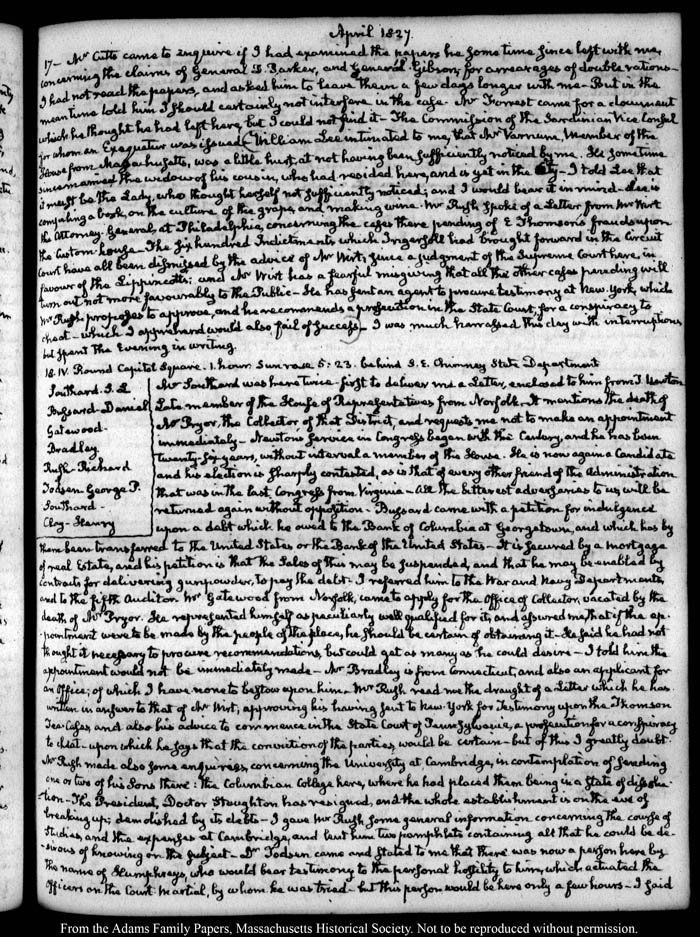 April 1827.
17— Mr Cutts came to enquire if I had examined the papers he some time since left with me,
concerning the claims of General D. Parker, and General Gibson, for arrearages of double rations—
I had not read the papers, and asked him to leave them a few days longer with me— But in the
mean time told him I should certainly not interfere in the case. Mr Forrest came for a document
which he thought he had left here, but I could not find it— The Commission of the Sardinian Vice Consul
for whom an Exequatur was issued— William Lee intimated to me, that Mr Varnum, Member of the
House from Massachusetts, was a little hurt, at not having been sufficiently noticed by me. He some time
since married the widow of his cousin, who had resided here, and is yet in the City— I told Lee that
it must be the Lady, who thought herself not sufficiently noticed; and I would bear it in mind— Lee is
compiling a book, on the culture of the grape, and making wine. Mr Rush spoke of a Letter from Mr Wirt
the Attorney General, at Philadelphia, concerning the cases there pending of E Thomson's frauds upon
the Custom-house— The six hundred Indictments which Ingersoll had brought forward in the Circuit
Court have all been dismissed by the advice of Mr Wirt; since a judgment of the Supreme Court here, in
favour of the Lippincotts: and Mr Wirt has a fearful misgiving that all the other cases pending will
turn out not more favourably to the Public— He has sent an agent to procure testimony at New York, which
Mr Rush proposes to approve, and he recommends a prosecution in the State Court, for a conspiracy to
cheat— which I apprehend would also fail of success— I was much harrassed this day with interruptions
but spent the Evening in writing.
18. IV. Round Capitol Square. 1. hour. Sun rose 5:23. behind S.E. Chimney State Department
Southard. S. L
Bussard- Daniel
Gatewood-
Bradley
Rush- Richard
Todsen George P.
Southard-
Clay- Henry
Mr Southard was here twice— first to deliver me a Letter, enclosed to him from T Newton
Late member of the House of Representatives from Norfolk. It mentions the death of
Mr Pryor, the Collector of that District, and requests me not to make an appointment
immediately— Newton's service in Congress began with the Century, and he has been
twenty-six years, without interval a member of the House. He is now again a Candidate
and his election is sharply contested, as is that of every other friend of the Administration
that was in the last Congress from Virginia— All the bitterest adversaries to us will be
returned again without opposition— Bussard came with a petition for indulgence
upon a debt which he owed to the Bank of Columbia at Georgetown, and which has by
them been transferred to the United States or the Bank of the United States— It is secured by a mortgage
of real Estate, and his petition is that the sales of this may be suspended, and that he may be enabled by
contracts for delivering gunpowder, to pay the debt. I referred him to the War and Navy Departments,
and to the fifth Auditor. Mr Gatewood from Norfolk, came to apply for the Office of Collector, vacated by the
death of Mr Pryor. He represented himself as peculiarly well qualified for it, and assured me, that if the ap-
pointment were to be made by the people of the place, he should be certain of obtaining it— He said he had not
thought it necessary to procure recommendations, but could get as many as he could desire— I told him the
appointment would not be immediately made— Mr Bradley is from Connecticut, and also an applicant for
an Office; of which I have none to bestow upon him. Mr Rush read me the draught of a Letter which he has
written in answer to that of Mr Wirt, approving his having sent to New York for testimony upon the Thomson
Tea-Cases and also his advice to commence in the State Court of Pennsylvania, a prosecution for a conspiracy
to cheat— upon which he says that the conviction of the parties, would be certain— but of this I greatly doubt.
Mr Rush made also some enquiries, concerning the University at Cambridge, in contemplation of sending
one or two of his Sons there: the Columbian College here, where he had placed them being in a state of dissolu-
tion— The President, Doctor Staughton has resigned, and the whole establishment is on the eve of
breaking up; demolished by its debts— I gave Mr Rush some general information concerning the course of
Studies, and the expenses at Cambridge, and lent him two pamphlets containing all that he could be de-
sirous of knowing on the subject— Dr Todsen came and stated to me that there was now a person here by
the name of Humphreys, who would bear testimony to the personal hostility to him, which actuated the
Officers on the Court Martial, by whom he was tried— but this person would be here only a few hours— I said
From the Adams Family Papers, Massachusetts Historical Society. Not to be reproduced without permission.